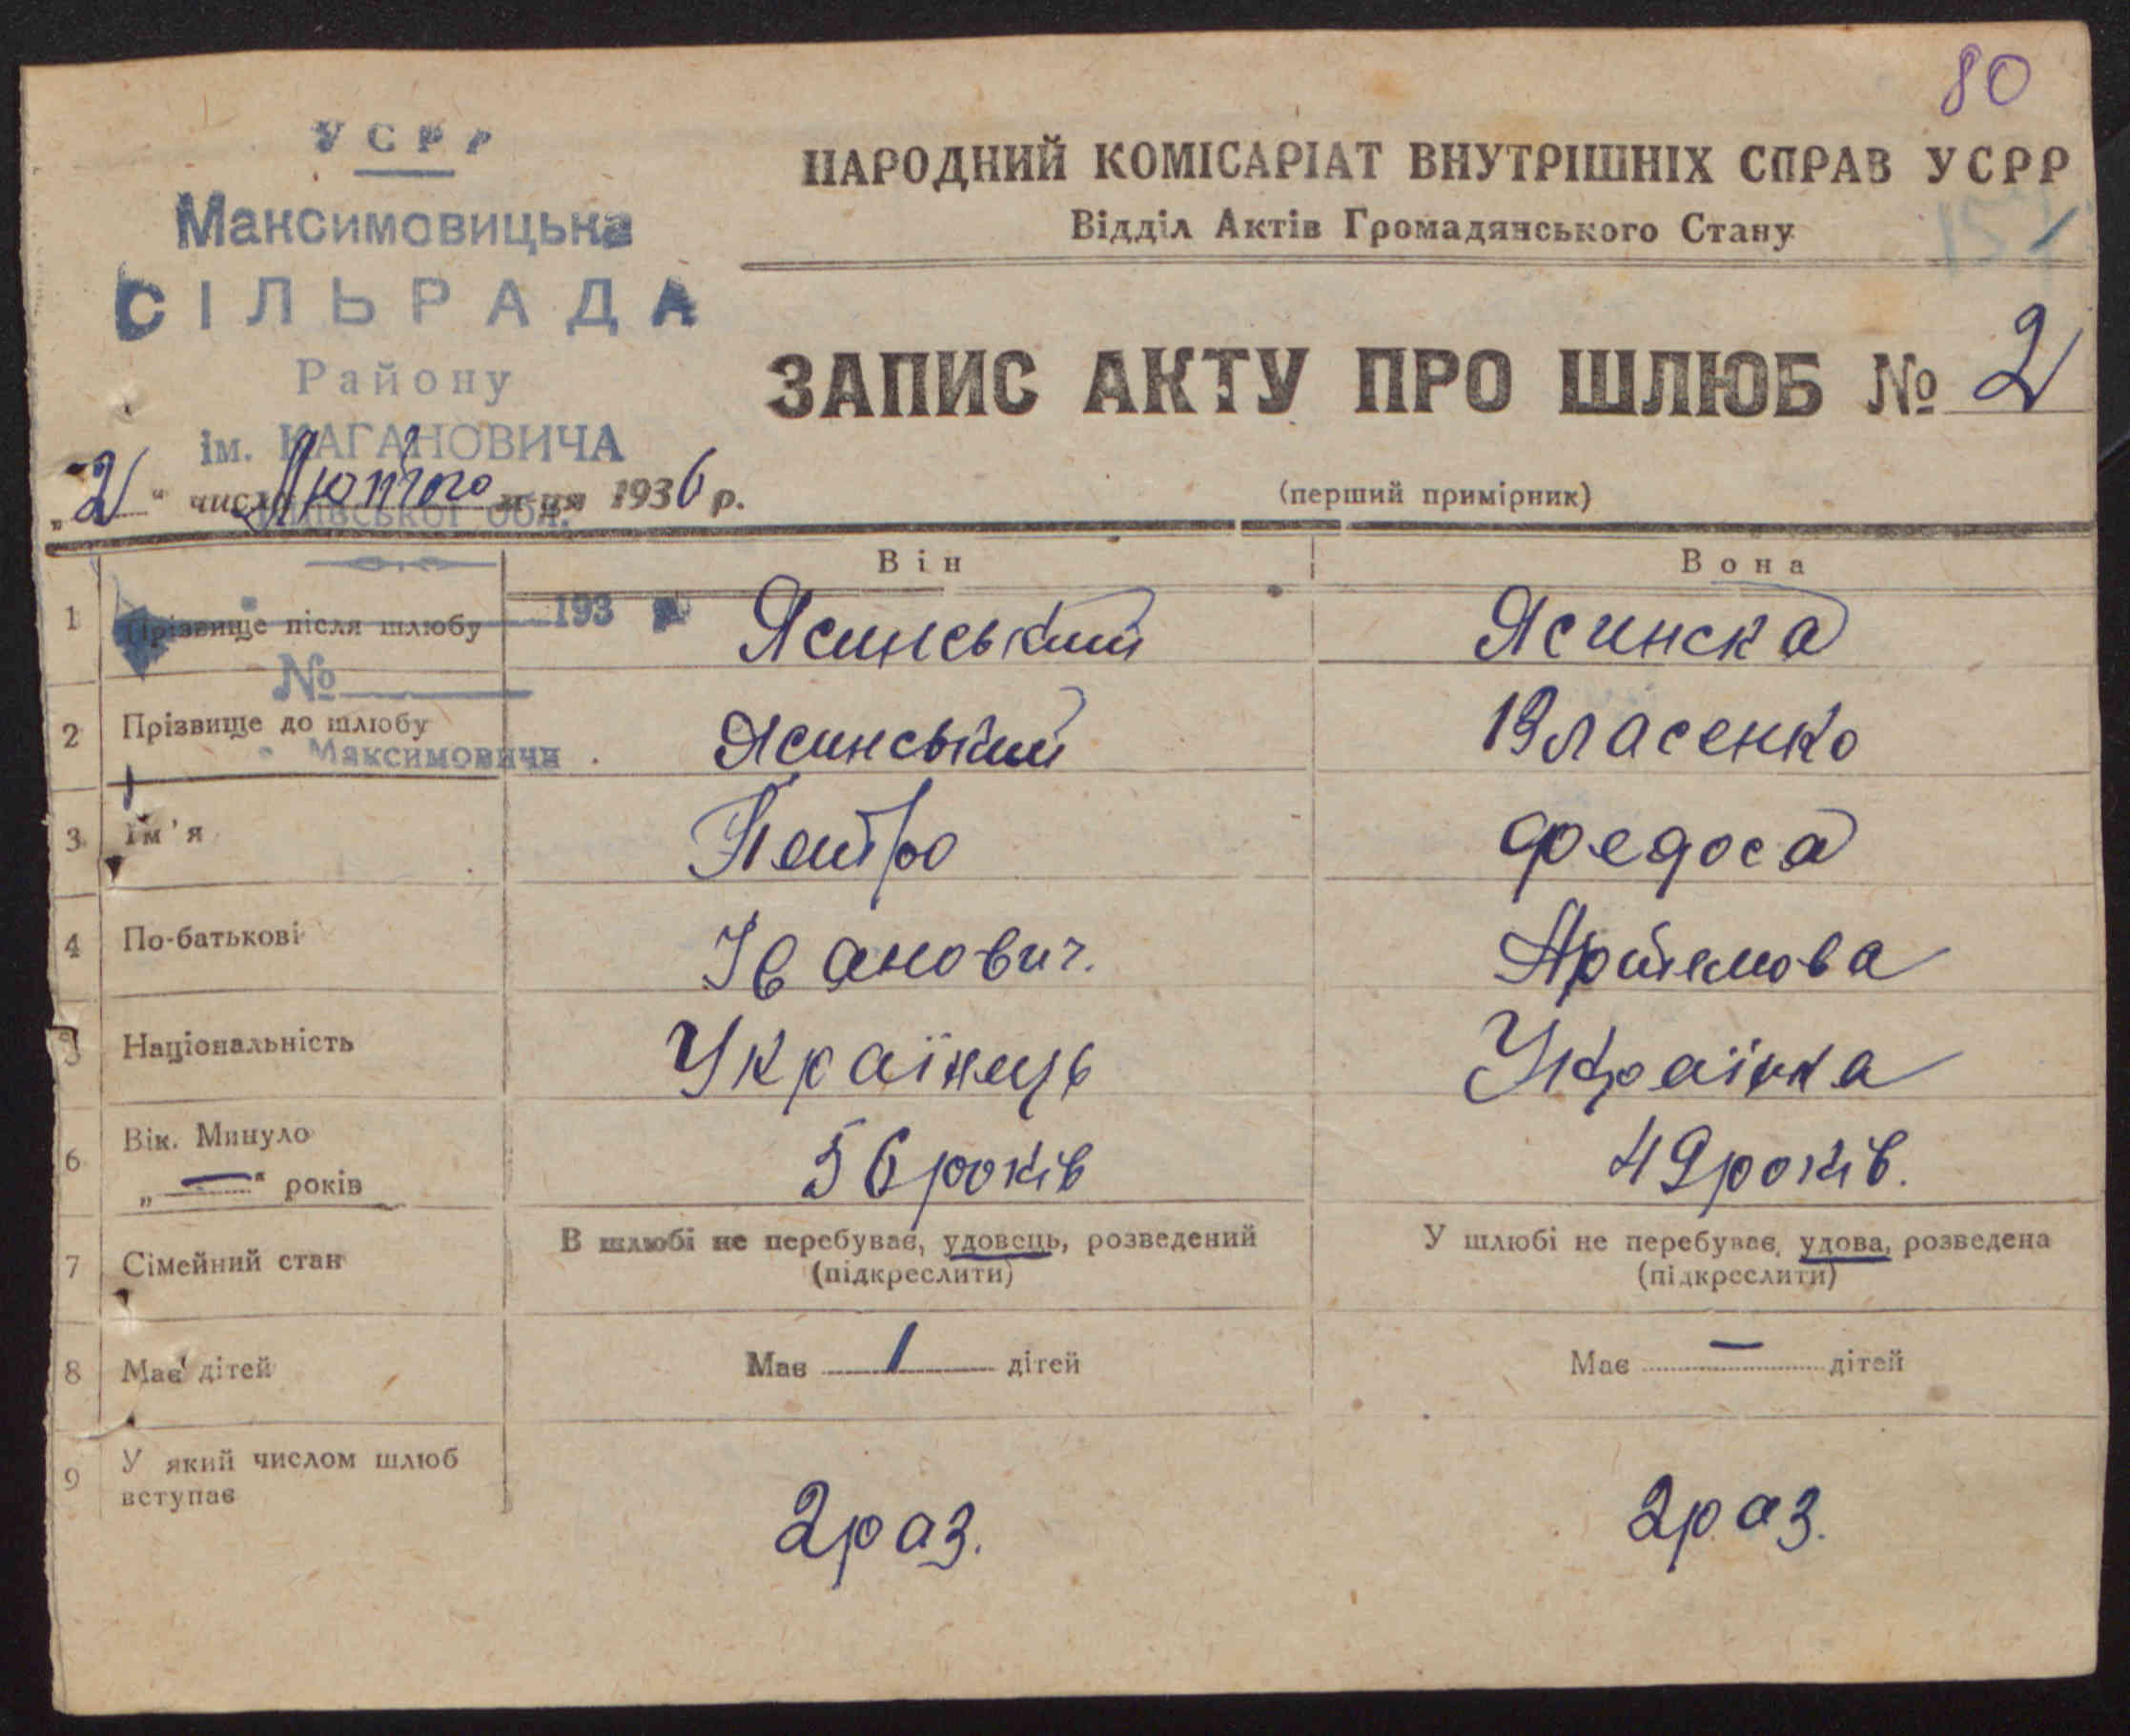 80
УСРР
Максимовицька
СІЛЬРАДА
Району
ім. КАГАНОВИЧА
Київської обл.
193
№
Максимовичи
НАРОДНИЙ КОМІСАРІАТ ВНУТРІШНІХ СПРАВ УСРР
Відділ Актів Громадянського Стану
ЗАПИС АКТУ ПРО ШЛЮБ № 2
„2“ числа Лютого м-ця 1936 р.
(перший примірник)
Він Вона
1 Прізвище після шлюбу Ясинський Ясинска
2 Прізвище до шлюбу Ясинський Власенко
3 Ім'я Петро Федоса
4 По-батькові Іванович. Артемова
5 Національність Українець Українка
6 Вік. Минуло
„—“ років 56 років 49 років.
7 Сімейний стан В шлюбі не перебуває, удовець, розведений У шлюбі не перебуває, удова, розведена
(підкреслити) (підкреслити)
8 Має дітей Має 1 дітей Має — дітей
9 У який числом шлюб
вступає 2 раз. 2 раз.